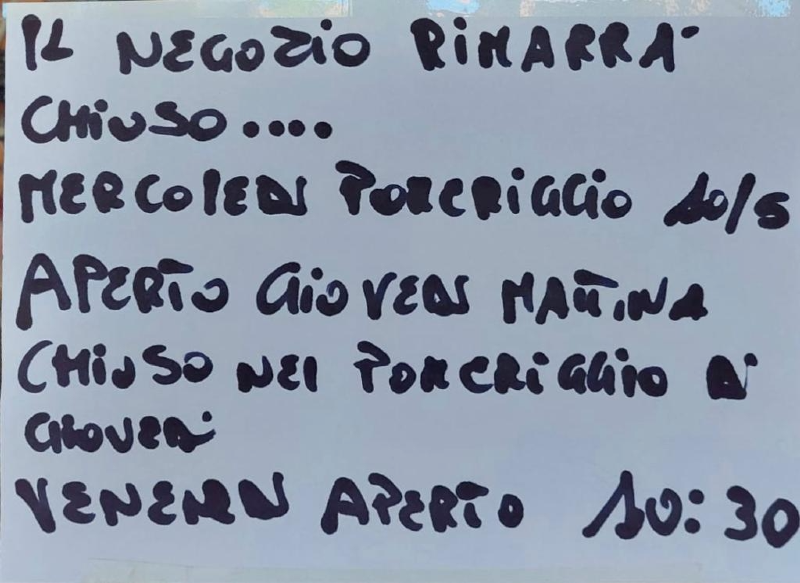 IL NEGOZIO RIMARRÀ
CHIUSO....
MERCOLEDI POMERIGGIO 10/5
APERTO GIOVEDI MATTINA
CHIUSO NEL POMERIGGIO DI
GIOVEDI
VENERDI APERTO 10:30